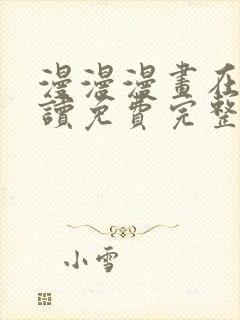 漫漫漫畫在
讀免費完整
小雪